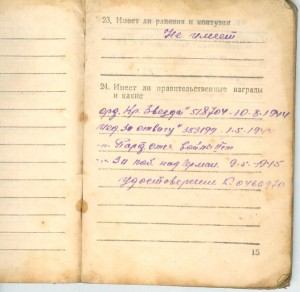 23. Имеет ли ранения и контузии
Не имеет
24. Имеет ли правительственные награды
и какие
орд. Кр. Звезды" 518704 - 10.8.1944
мед. За отвагу" 353199 - 1.5.
Парт. отеч. войны
За поб. над Герман. 9-5-1945
удостоверение
15